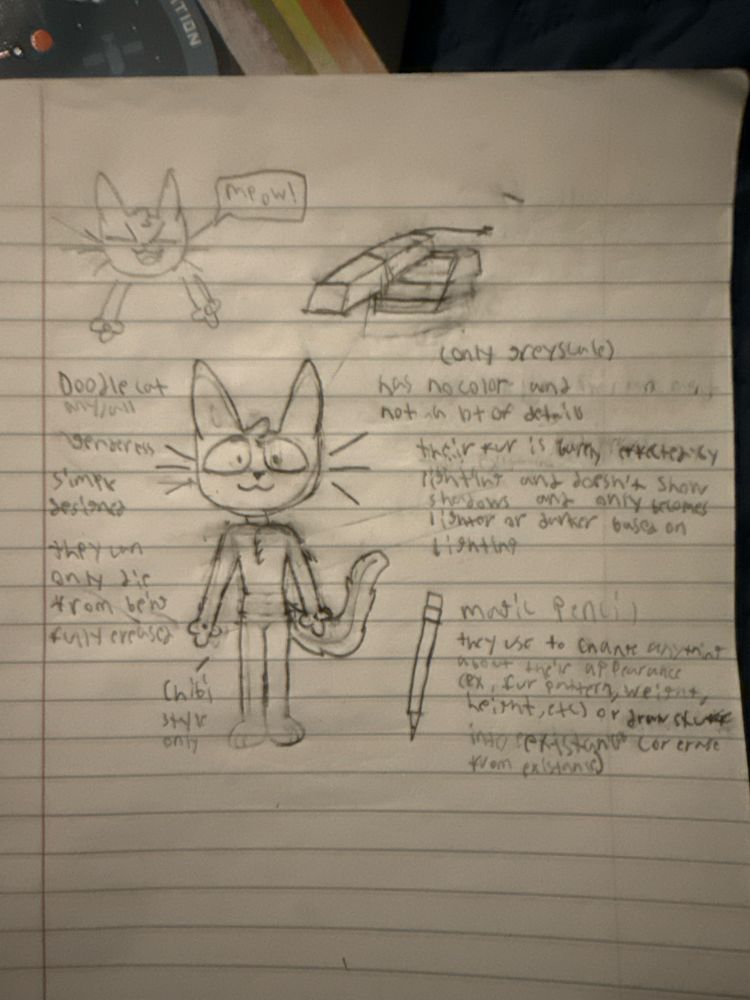 ATION
meow!
(only greyscale)
Doodle cat
any/all
genderess
simple
designed
they can
only die
from being
fully ereased
Chibi
style
only
has no color and
not a lot of details
their fur is barly effected by
lighting and doesn't show
shadows and only becomes
lightor or darker based on
Lighting
matic Pencil
they use to change anything
about their appearance
(ex, fur pattern, weight,
height, etc) or draw
into existance (or erase
from existanse)